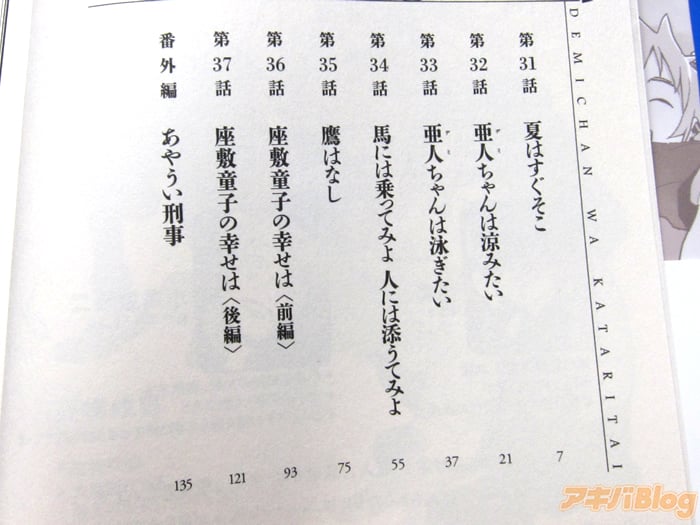 DEMICHAN WA KATARITAI
第31話 夏はすぐそこ 7
第32話 亜人ちゃんは涼みたい 21
第33話 亜人ちゃんは泳ぎたい 37
第34話 馬には乗ってみよ 人には添うてみよ 55
第35話 鷹はなし 75
第36話 座敷童子の幸せは〈前編〉 93
第37話 座敷童子の幸せは〈後編〉 121
番外編 あやうい刑事 135
アキバBlog